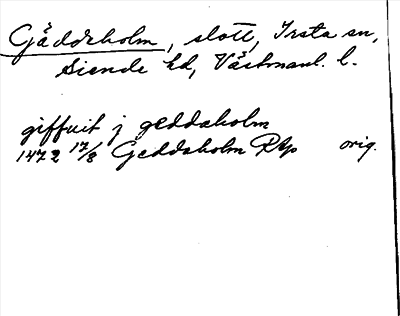 Gäddeholm, slott, Irsta sn,
Siende hd, Västmanl. l.
giffuit j geddaholm
1472 17/8 Geddaholm RAp orig.